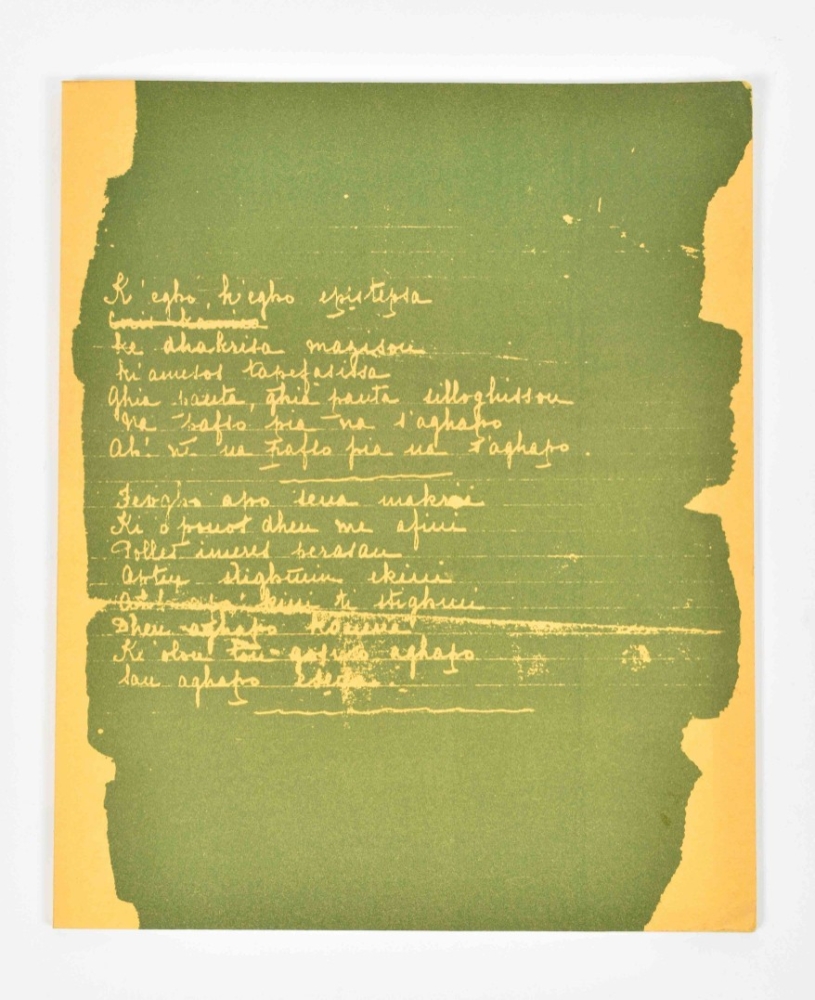 K'egho, k'egho epistepsa
ke dhakrisa mazisou
ki amesos
Ghia panta, ghia panta silloghissou
Na pafso pia na s'aghapo
Ah! na pafso pia na s'aghapo.
Fevgho apo sena makrei
Ki o ponos dheu me afini
Polles imeres perasan
stighmin ekini
ekini ti stighmi
Dheu aghapo
Ki olou aghapo
San aghapo